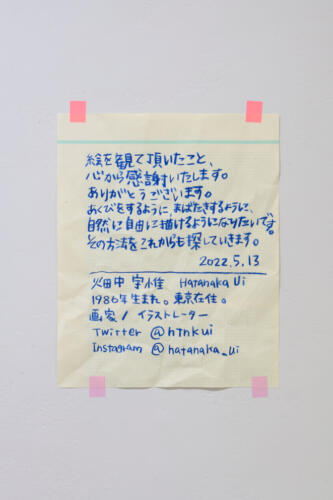 絵を観て頂いたこと、
心から感謝いたします。
ありがとうございます。
あくびをするように、まばたきするように、
自然に自由に描けるようになりたいです。
その方法をこれからも探していきます。
2022.5.13
畑中 宇惟 Hatanaka Ui
1986年生まれ。東京在住。
画家 / イラストレーター
Twitter @htnkui
Instagram @hatanaka_ui